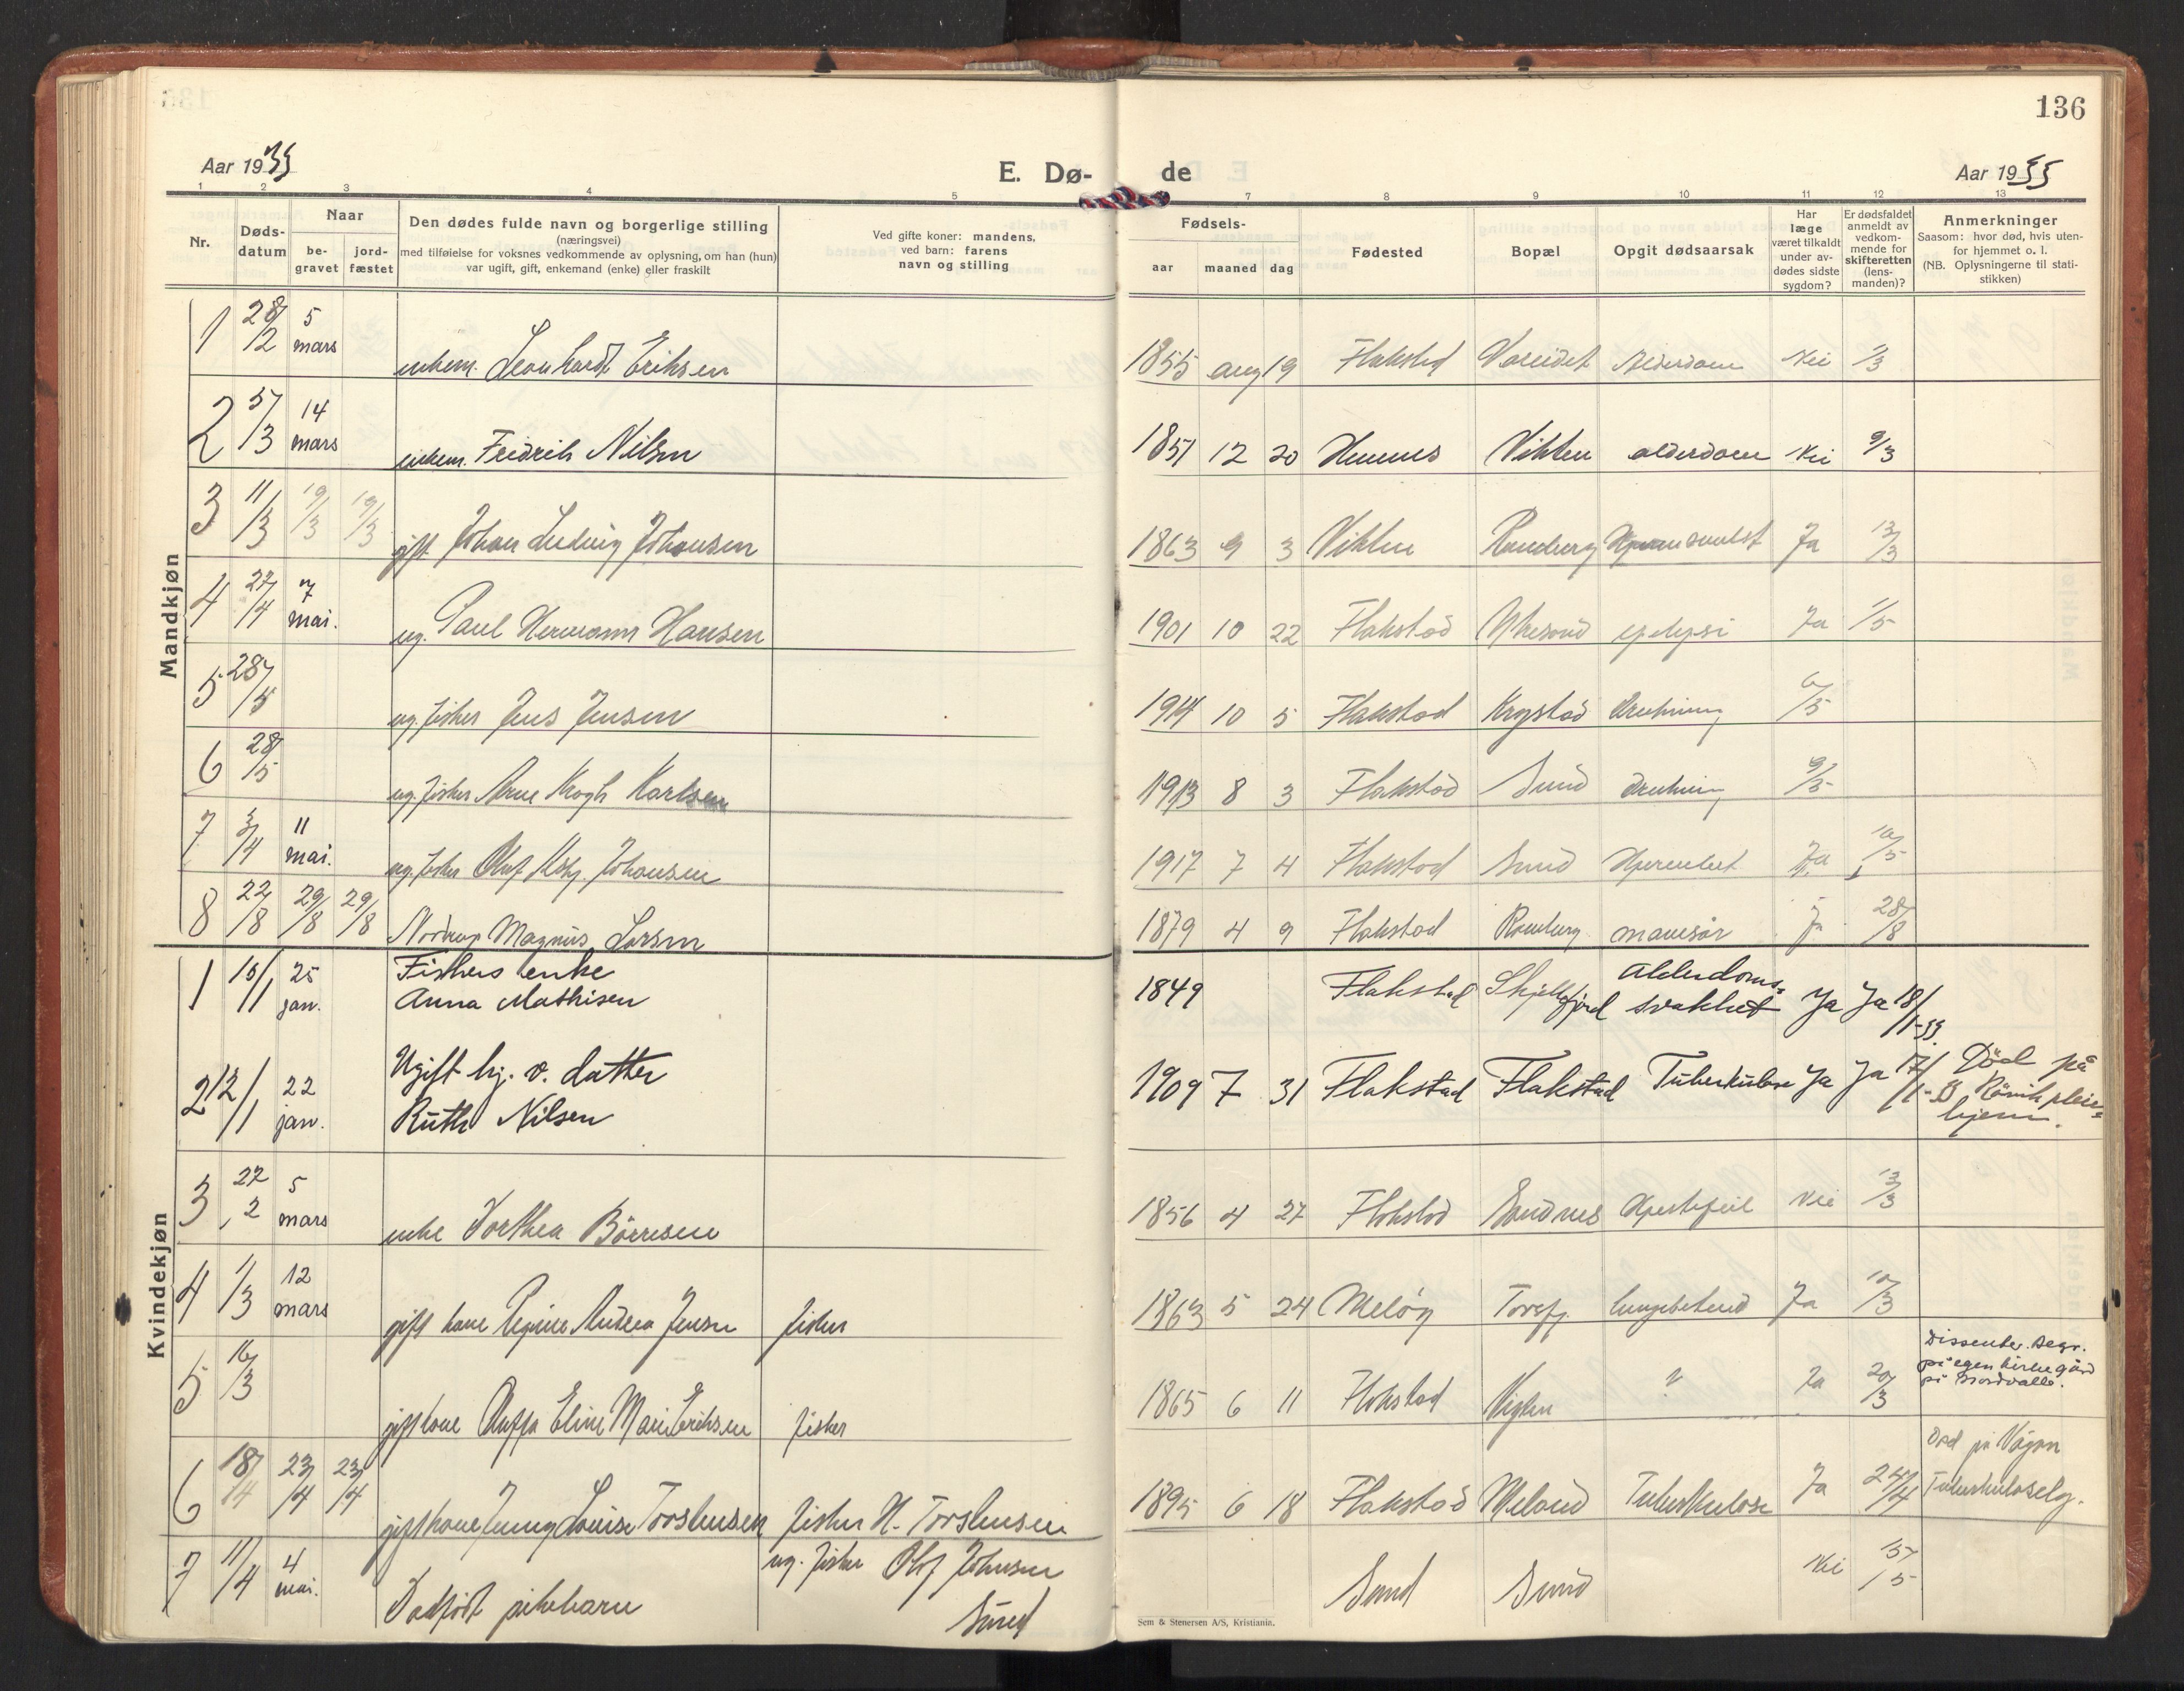 136
Aar 1933
E. Dø-
de
Aar 1933
1 2 3 4 5 7 8 9 10 11 12 13
Nr.
Døds-
datum
Naar
be-
gravet
jord-
fæstet
Den dødes fulde navn og borgerlige stilling
(næringsvei)
med tilføielse for voksnes vedkommende av oplysning, om han (hun)
var ugift, gift, enkemand (enke) eller fraskilt
Ved gifte koner: mandens,
ved barn: farens
navn og stilling
Fødsels-
aar maaned dag
Fødested
Bopæl
Opgit dødsaarsak
Har
læge
været tilkaldt
under av-
dødes sidste
sygdom?
Er dødsfaldet
anmeldt av
vedkom-
mende for
skifteretten
(lens-
manden)?
Anmerkninger
Saasom: hvor død, hvis uten-
for hjemmet o. l.
(NB. Oplysningerne til stati-
stikken)
Mandkjøn
1 28/2 5 mars enkem. Leonhardt Eriksen 1855 aug 19 Flakstad Vareidet Alderdom Nei 1/3
2 5/3 14 mars enkem. Fredrik Nilsen 1851 12 20 Hemnes Vikten alderdom Nei 9/3
3 11/3 19/3 19/3 gift Johan Ludvig Johansen 1863 9 3 Vikten Ramberg Ja 13/3
4 27/4 7 mai. ug. Paul Hermann Hansen 1901 10 22 Flakstad Nesund epelepsi Ja 1/5
5 28/5 ug. fisker Jens Jensen 1914 10 5 Flakstad Krystad Drukning 6/5
6 28/5 ug. fisker Arne Krogh Karlsen 1913 8 3 Flakstad Sund drukning 9/5
7 3/4 11 mai. ug. fisker Olaf Johansen 1917 7 4 Flakstad Sund Ja 10/5
8 22/8 29/8 29/8 Nordrup Magnus Larsen 1879 4 9 Flakstad Ramberg mavesår Ja 28/8
Kvindekjøn
1 15/1 25 jan. Fiskers enke
Anna Mathisen 1849 Flakstad Skjellfjord Alderdoms-
svakhet Ja Ja 18/1-33.
2 12/1 22 jan. Ugift hj. v. datter
Ruth Nilsen 1909 7 31 Flakstad Flakstad Tuberkulose Ja Ja 17/1-33 Död på
Rönvik pleie-
hjem.
3 22/2 5 mars enke Dorthea Börresen 1856 4 27 Flakstad Sandnes Hjertefeil Nei 13/3
4 1/3 12 mars gift kone Regine Andrea Jensen fisker 1863 5 24 Meløy Torsfj. lungebetend Ja 10/3
5 16/3 gift kone Oluffa Eline Marie Eriksen fisker 1865 6 11 Flakstad Vikten ? Ja 20/3 Dissenter. Begr.
på egen kirkegård
på Nordvalle.
6 18/4 23/4 23/4 gift kone Jenny Louise Torstensen fisker H. Torstensen 1895 6 18 Flakstad Meland Tuberkulose Ja 24/4 Død på Vågan
Tuberkuloselg.
7 11/4 4 mai. Dødfødt pikebarn ug. fisker Olaf Johnsen
Sund Sund Sund Nei 15/5
Sem & Stenersen A/S, Kristiania.